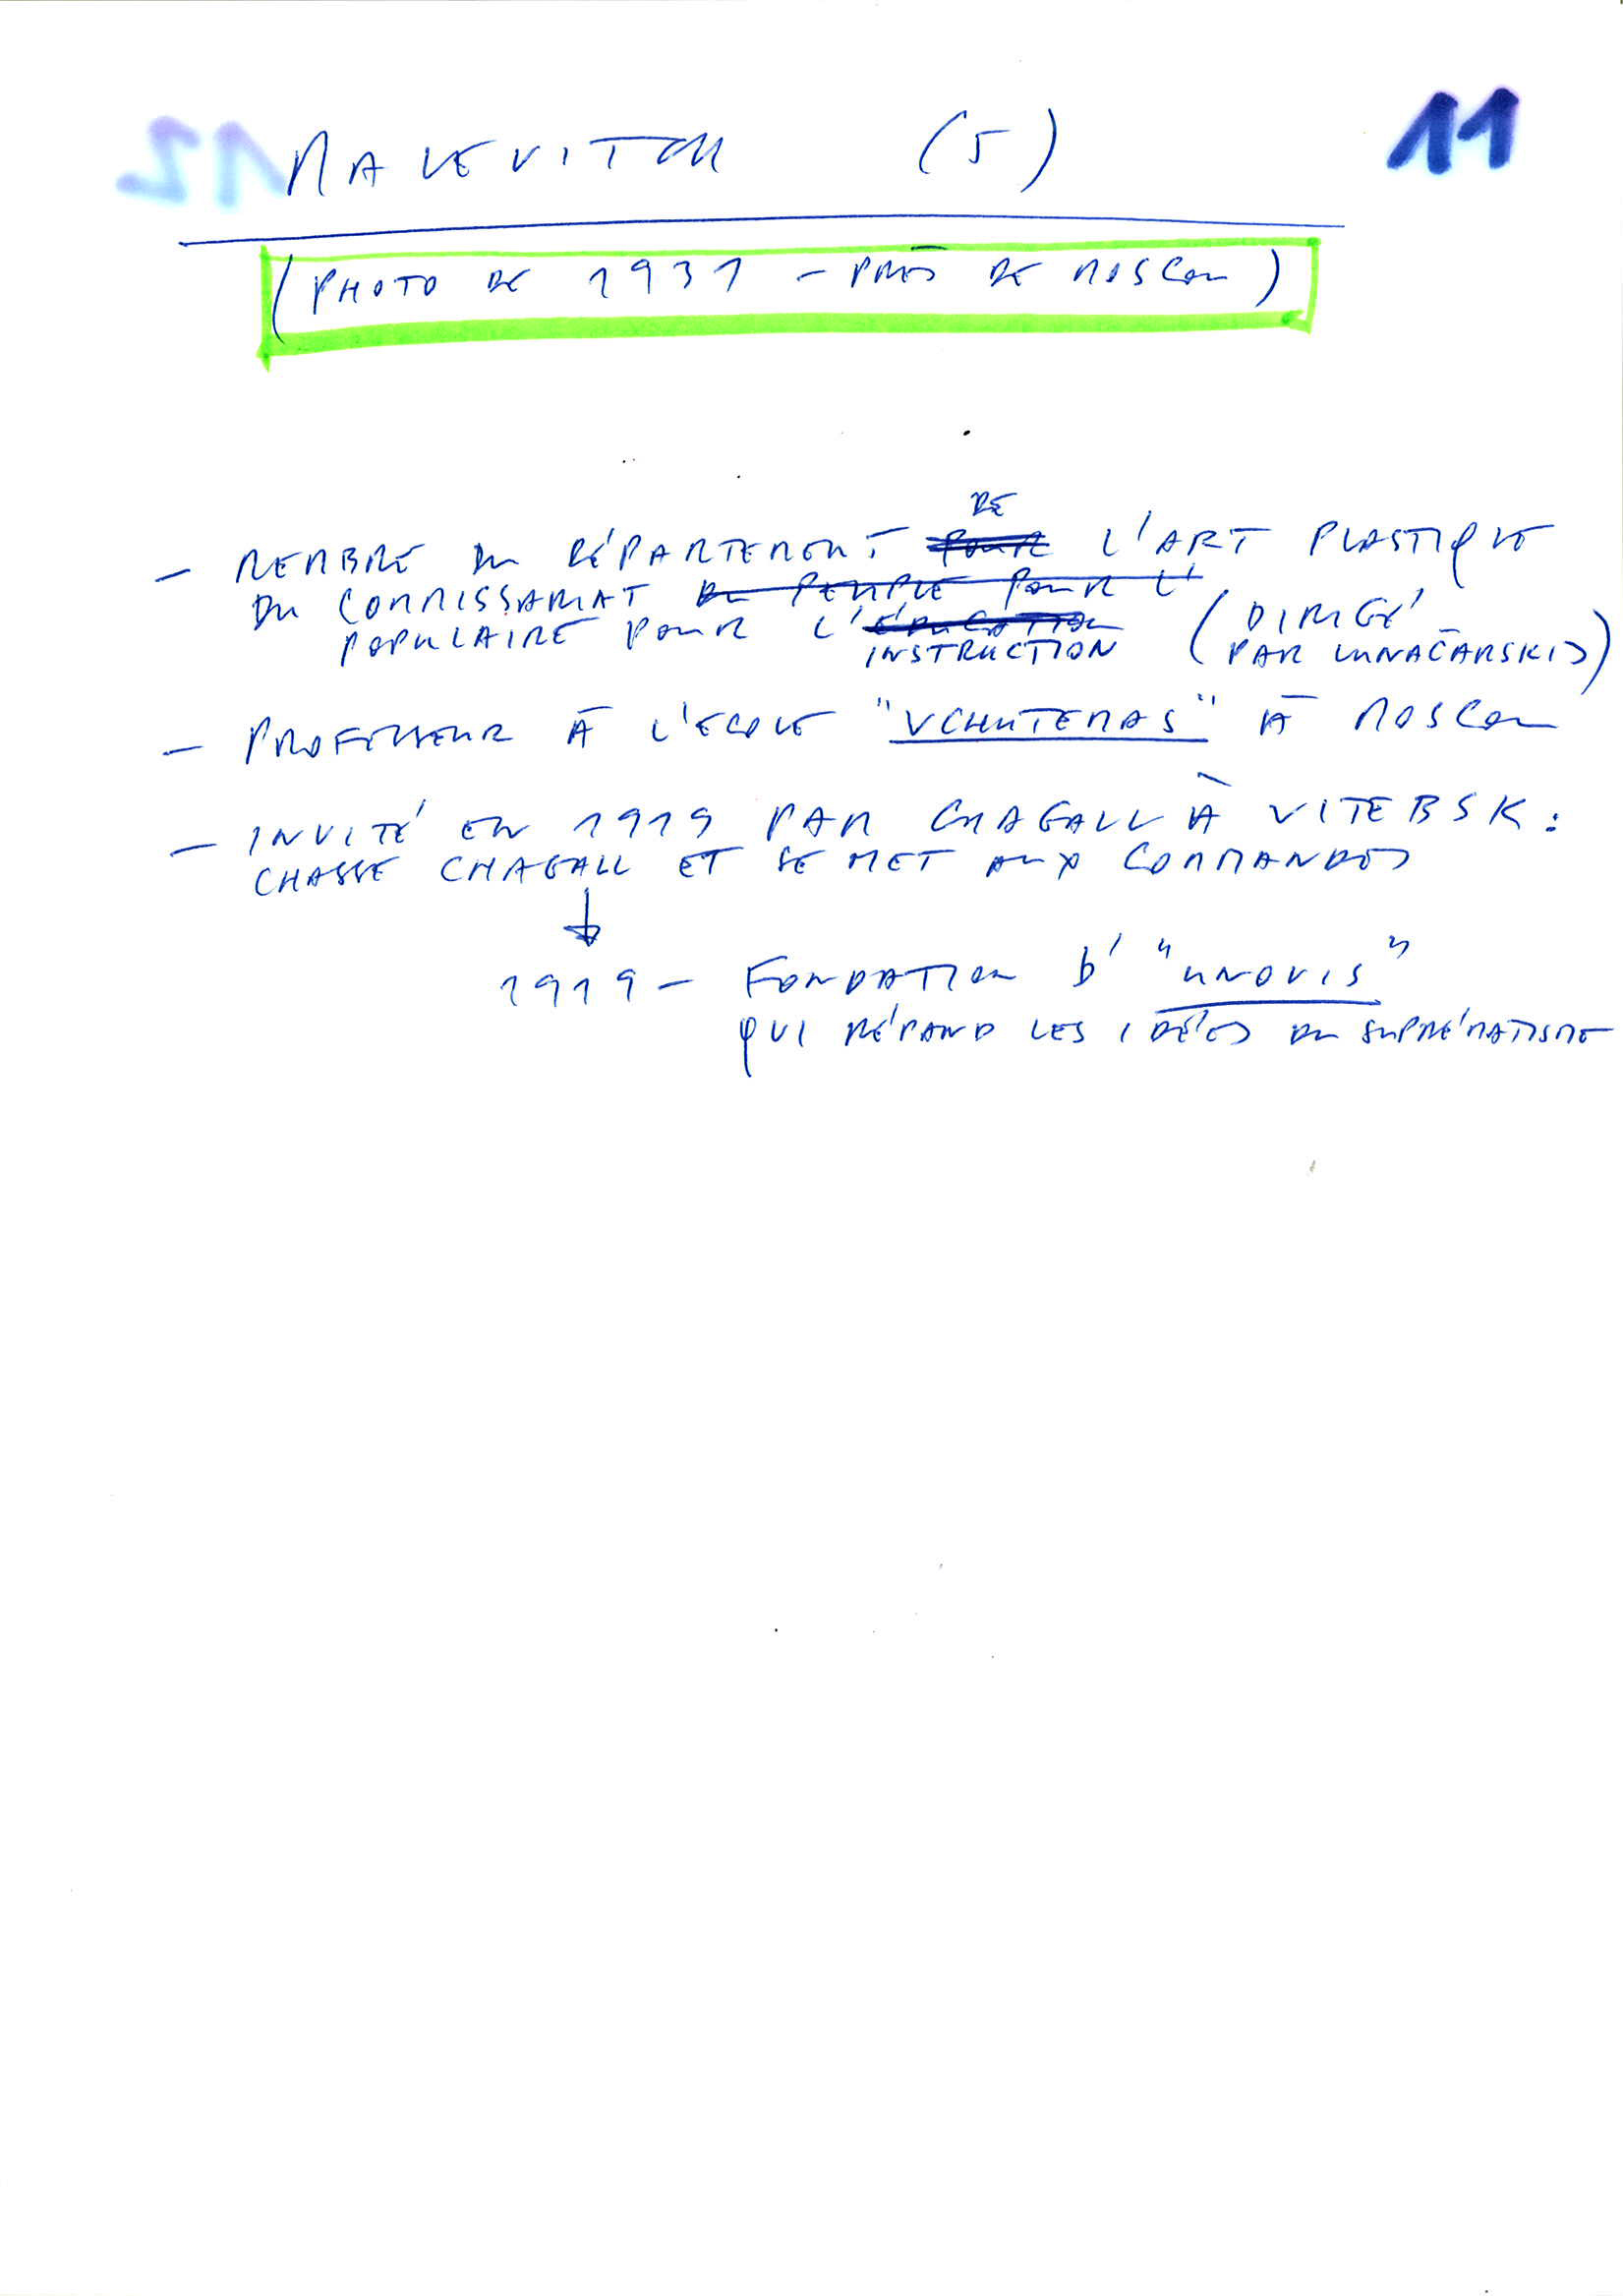 MALEVITCH (5) 11
(PHOTO DE 1931 - PRÈS DE MOSCOU)
DE
- MEMBRE DU DÉPARTEMENT POUR L'ART PLASTIQUE
DU COMMISSARIAT DU PEUPLE POUR L'
POPULAIRE POUR L'ÉDUCATION (DIRIGÉ
INSTRUCTION PAR LUNAČARSKIJ)
- PROFESSEUR À L'ECOLE "VCHUTEMAS" À MOSCOU
- INVITÉ EN 1919 PAR CHAGALL À VITEBSK :
CHASSE CHAGALL ET SE MET AUX COMMANDES
↓
1919 - FONDATION D' "UNOVIS"
QUI RÉPAND LES IDÉES DU SUPRÉMATISME